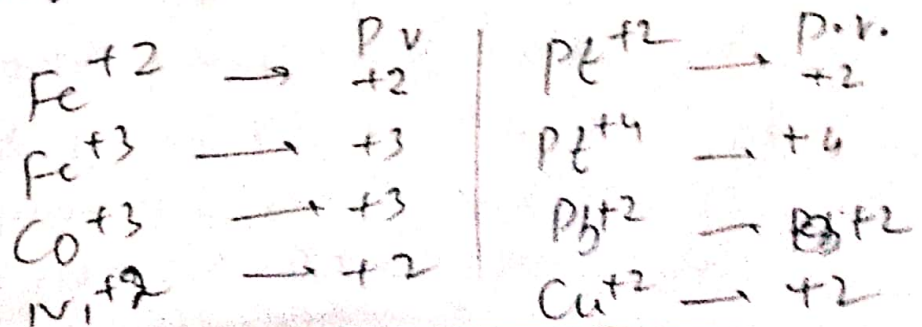 P V
Fe+2 → +2
Fe+3 → +3
Co+3 → +3
Ni+2 → +2
P.V.
Pt+2 → +2
Pt+4 → +4
Pb+2 → +2
Cu+2 → +2